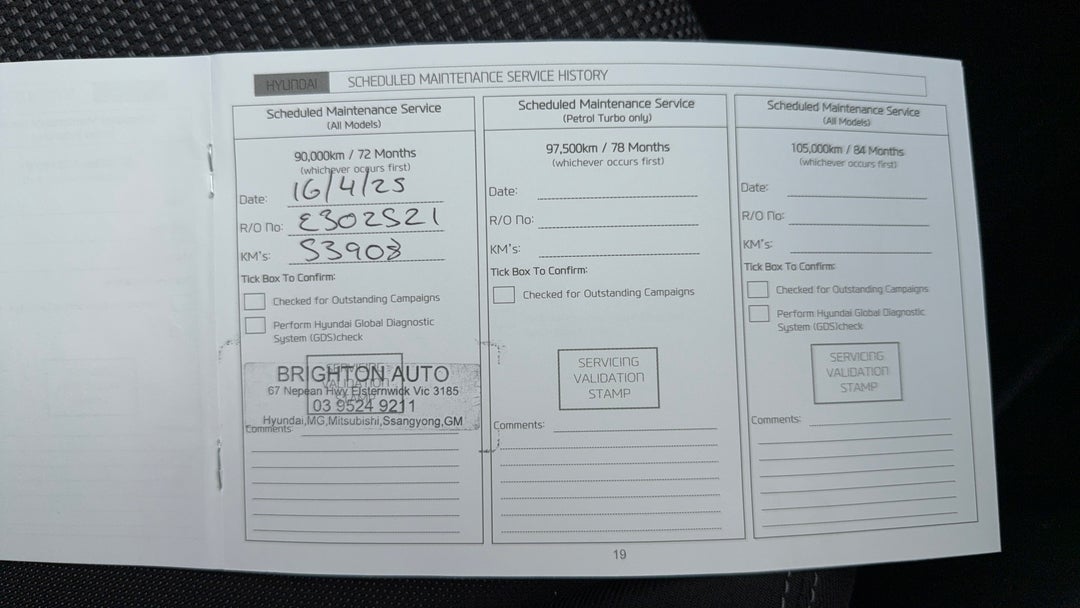 HYUNDAI SCHEDULED MAINTENANCE SERVICE HISTORY
Scheduled Maintenance Service
(All Models)
90,000km / 72 Months
(whichever occurs first)
Date: 16/4/25
R/O No: E302521
KM's: 53908
Tick Box To Confirm:
Checked for Outstanding Campaigns
Perform Hyundai Global Diagnostic
System (GDS)check
SERVICING
VALIDATION
BRIGHTON AUTO
67 Nepean Hwy Elsternwick Vic 3185
03 9524 9211
Hyundai,MG,Mitsubishi,Ssangyong,GM
Comments:
Scheduled Maintenance Service
(Petrol Turbo only)
97,500km / 78 Months
(whichever occurs first)
Date:
R/O No:
KM's:
Tick Box To Confirm:
Checked for Outstanding Campaigns
SERVICING
VALIDATION
STAMP
Comments:
Scheduled Maintenance Service
(All Models)
105,000km / 84 Months
(whichever occurs first)
Date:
R/O No:
KM's:
Tick Box To Confirm:
Checked for Outstanding Campaigns
Perform Hyundai Global Diagnostic
System (GDS)check
SERVICING
VALIDATION
STAMP
Comments:
19